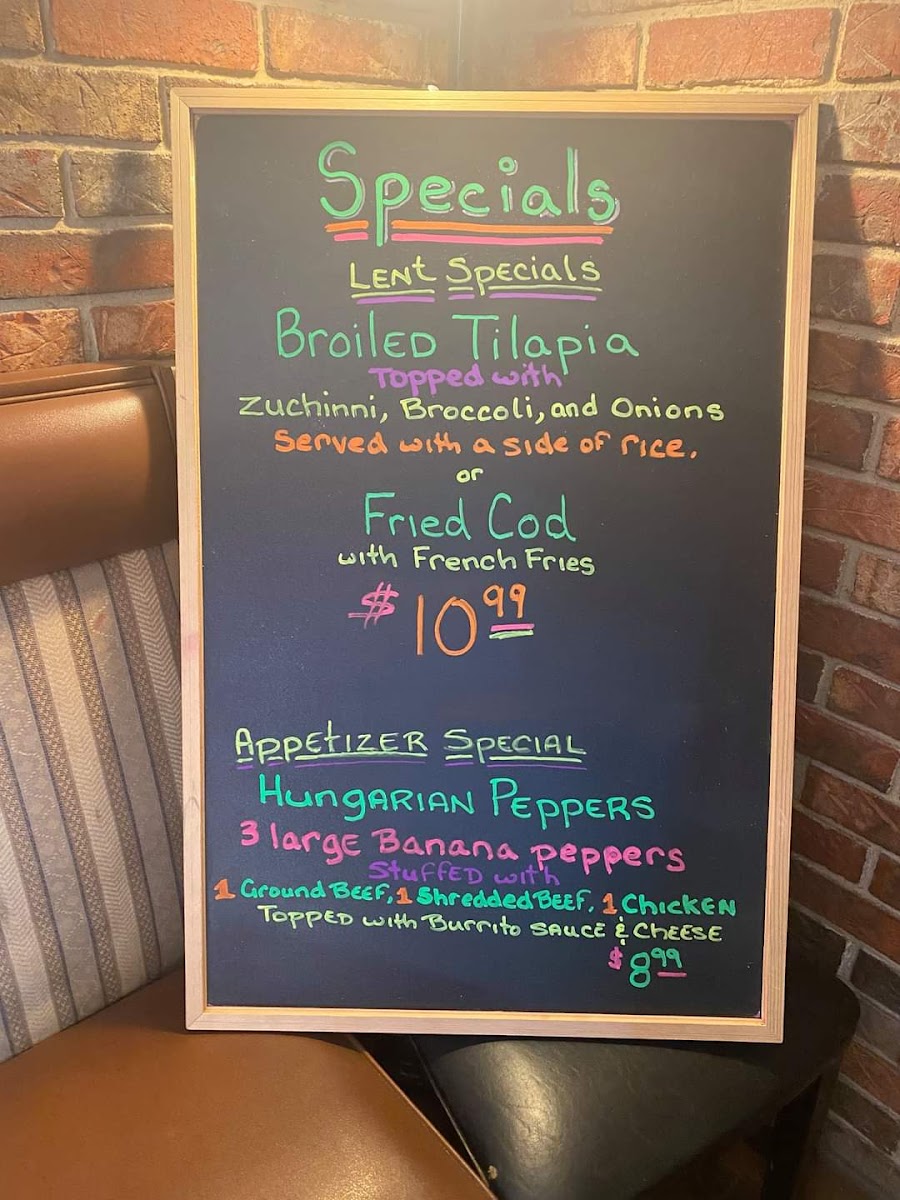 Specials
Lent Specials
Broiled Tilapia
Topped with
Zuchinni, Broccoli, and Onions
Served with a side of rice.
or
Fried Cod
with French Fries
$10.99
Appetizer Special
Hungarian Peppers
3 large Banana peppers
Stuffed with
1 Ground Beef, 1 Shredded Beef, 1 Chicken
Topped with Burrito sauce & Cheese
$8.99